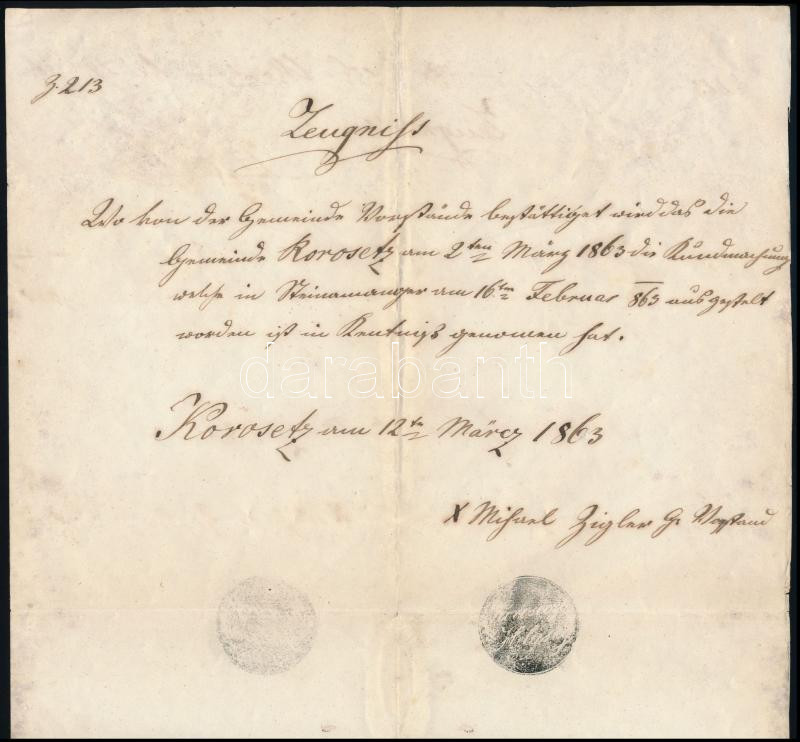 Z. 213
Zeugniss
Wo von der Gemeinde Vorstände bestättiget wird das die
Gemeinde Korosetz am 2ten März 1863 die Kundmachung
welche in Steinamanger am 16ten Februar 863 ausgestelt
worden ist in Kentniß genomen hat.
darabanth
Korosetz am 12tn Märcz 1863
X Mihael Zigler G. Vorstand